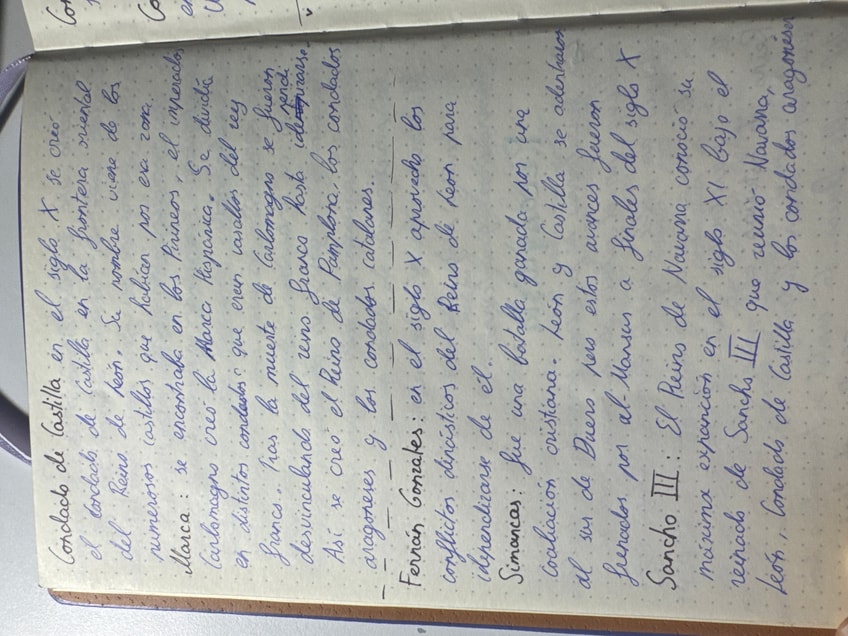 Condado de Castilla en el siglo X se creó
el condado de Castilla en la frontera oriental
del Reino de León. Su nombre viene de los
numerosos castillos que habían por esa zona.
Marca: se encontraba en los Pirineos, el imperador
Carlomagno creó la Marca Hispanica. Se dividía
en distintos condados que eran vasallos del rey
franco. Tras la muerte de Carlomagno se fueron
desvinculando del reino franco hasta
Así se creó el Reino de Pamplona, los condados
aragoneses y los condados catalanes.
Fernán Gonzales: en el siglo X aprovechó los
conflictos dinásticos del Reino de León para
idpendicarse de el.
Simancas: fue una batalla ganada por una
coaliación cristiana. León y Castilla se adentraron
al sur de Duero pero estos avances fueron
frenados por al-Mansur a finales del siglo X
Sancho III: El Reino de Navarra conoció su
máxima expanción en el siglo XI bajo el
reinado de Sancho III que reunió Navarra,
León, Condado de Castilla y los condados aragoneses